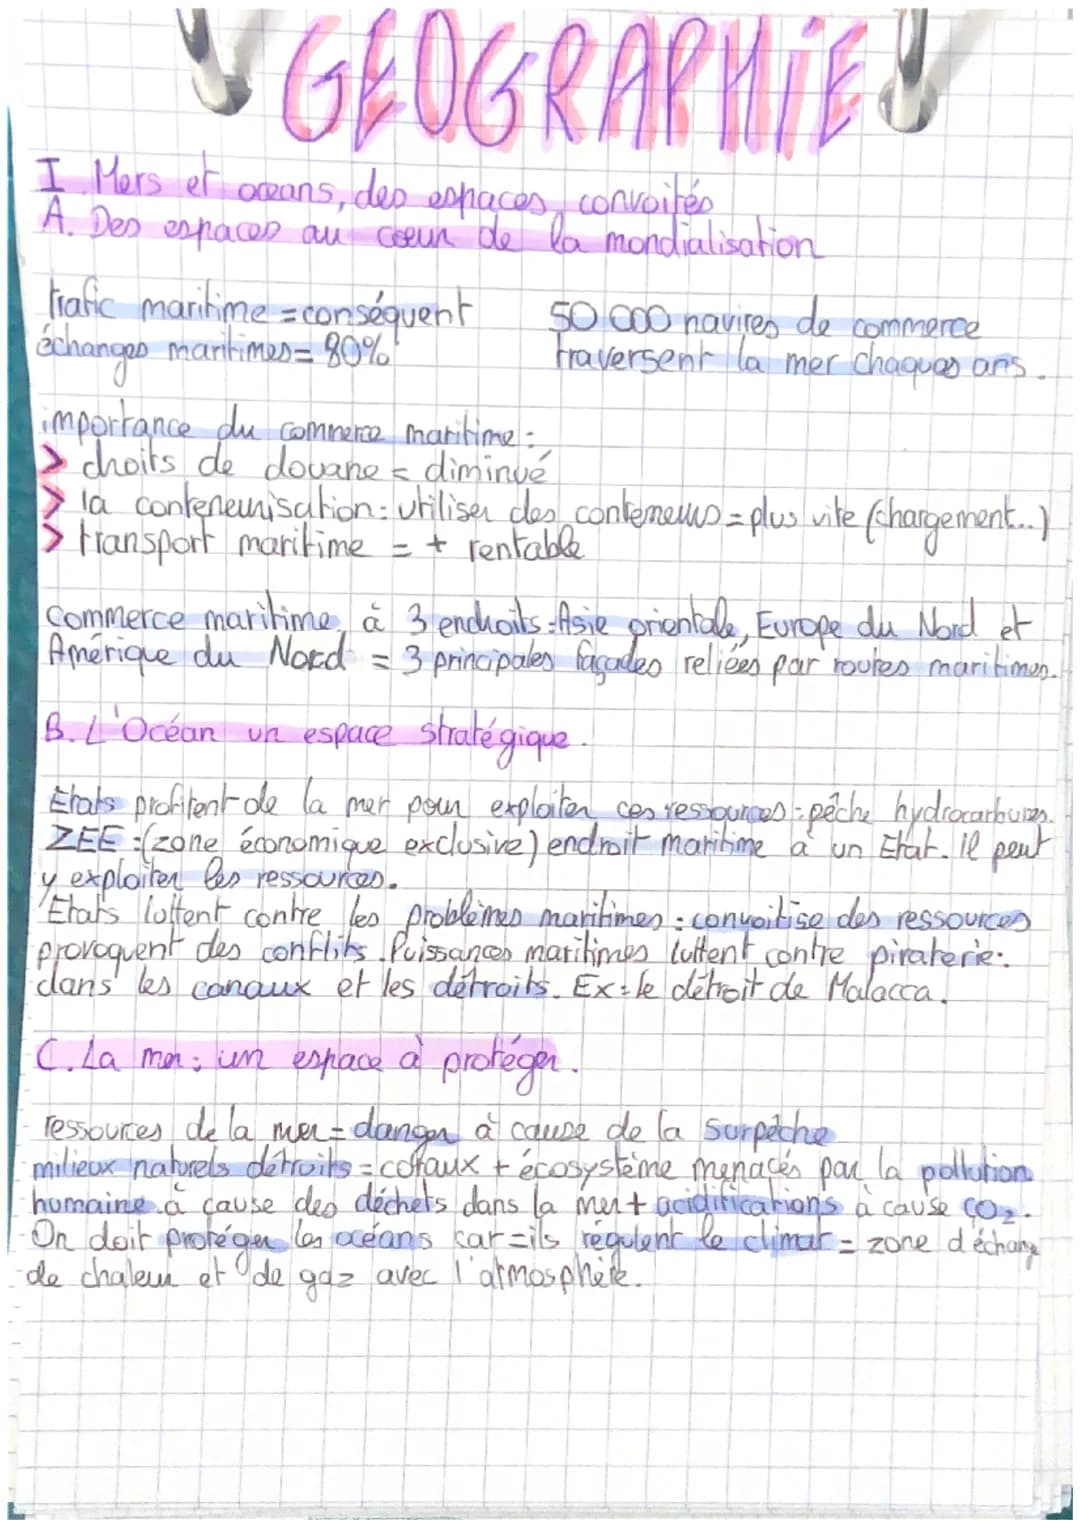 GEOGRAPHiE
I. Mers et océans, des espaces convoités
A. Des espaces au coeur de la mondialisation
trafic maritime = conséquent
échanges maritimes = 80%
50 000 navires de commerce
traversent la mer chaques ans.
importance du commerce maritime :
> droits de douane = diminué
> la conteneurisation : utiliser des conteneurs = plus vite (chargement...)
> transport maritime = + rentable
Commerce maritime à 3 endroits : Asie orientale, Europe du Nord et
Amérique du Nord = 3 principales façades reliées par routes maritimes.
B. L'Océan un espace stratégique.
Etats profitent de la mer pour exploiter ces ressources : pêche hydrocarbures.
ZEE : (zone économique exclusive) endroit maritime à un Etat. Il peut
y exploiter les ressources.
Etats luttent contre les problèmes maritimes : convoitise des ressources
provoquent des conflits. Puissances maritimes luttent contre piraterie :
dans les canaux et les détroits. Ex : le détroit de Malacca.
C. La mer : un espace à protéger.
ressources de la mer = danger à cause de la surpêche
milieux naturels détruits = coraux + écosystème menacés par la pollution
humaine à cause des déchets dans la mer + acidifications à cause CO2.
On doit protéger les océans car = ils régulent le climat = zone d'échange
de chaleur et de gaz avec l'atmosphère.